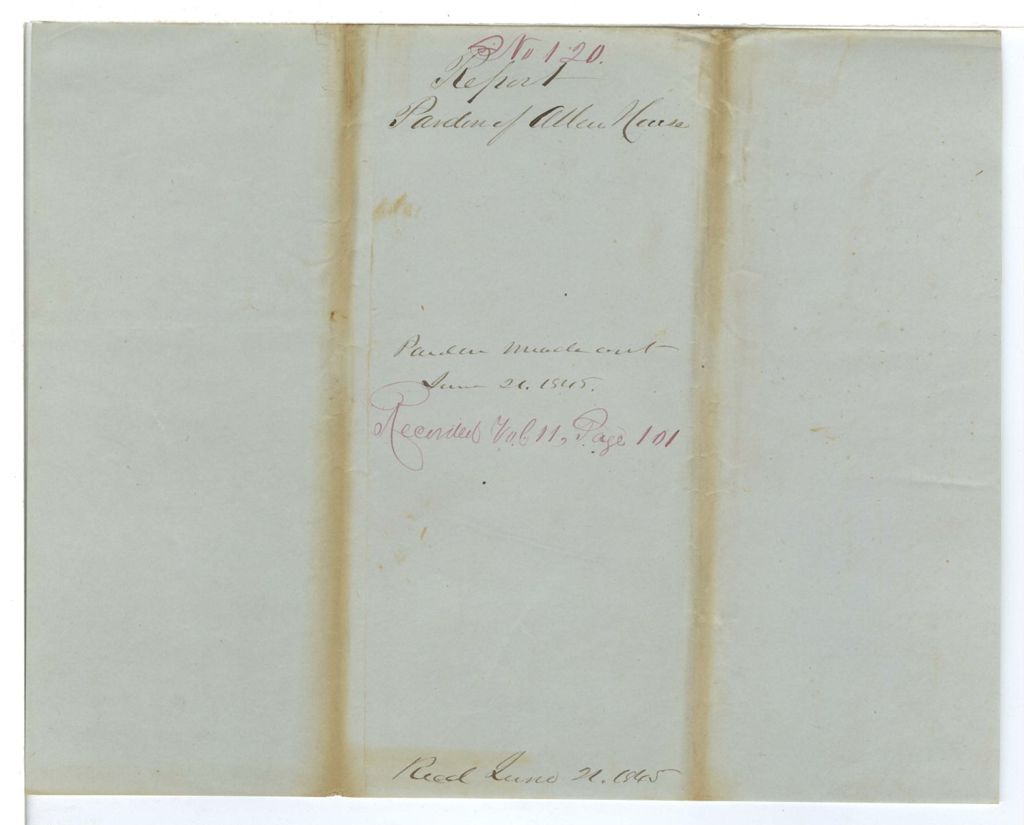 No 120.
Report
Pardon of Allen House
Pardon made out
June 21. 1845.
Recorded Vol 11, Page 101
Recd June 21. 1845